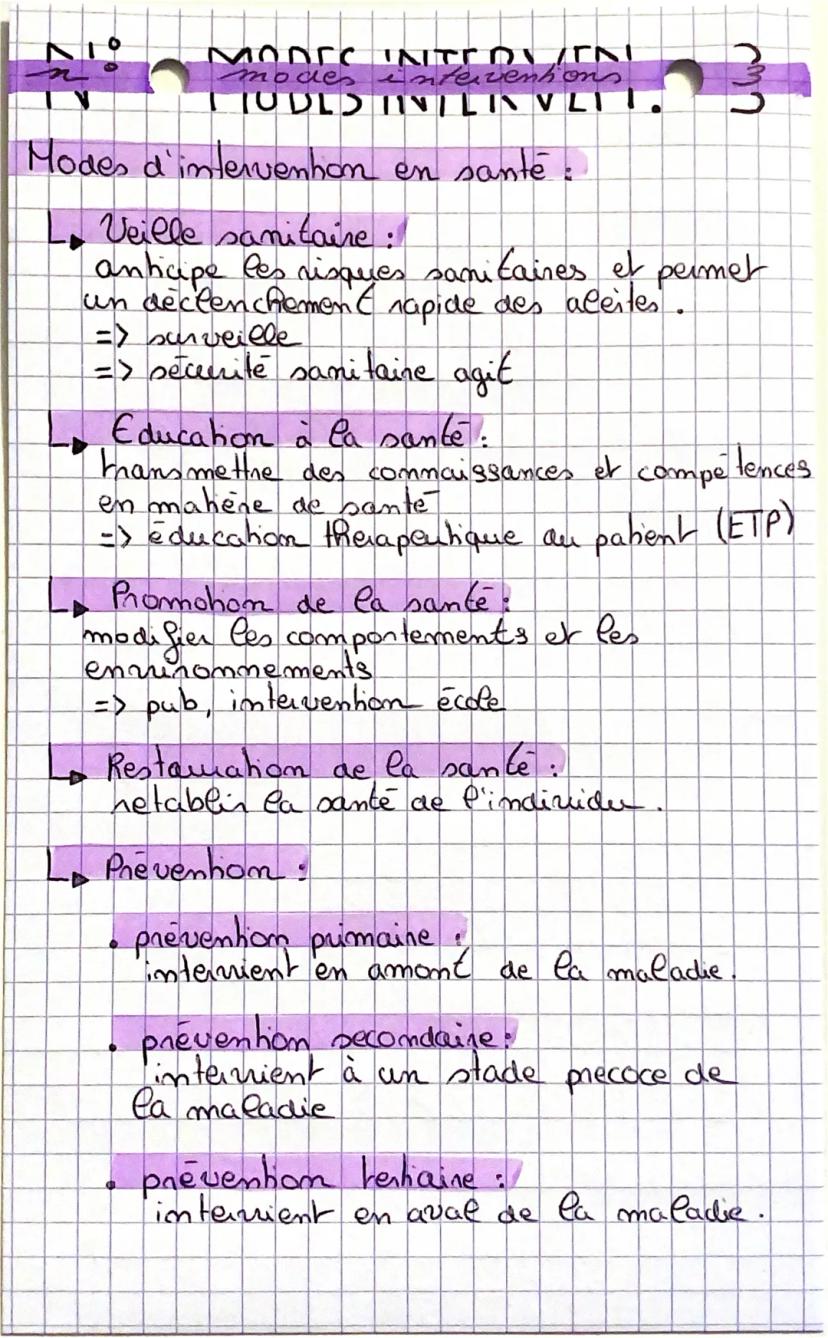 N°: MODES INTERVEN. 3
n° modes interventions 3
Modes d'intervention en santé :
Veille sanitaire :
anticipe les risques sanitaires et permet
un déclenchement rapide des alertes.
=> surveille
=> sécurité sanitaire agit
Education à la santé :
transmettre des connaissances et compétences
en matière de santé
=> éducation thérapeutique au patient (ETP)
Promotion de la santé :
modifier les comportements et les
environnements
=> pub, intervention école
Restauration de la santé :
retablir la santé de l'individu.
Prévention :
• prévention primaire :
intervient en amont de la maladie.
• prévention secondaire :
intervient à un stade precoce de
la maladie
• prévention tertiaire :
intervient en aval de la maladie.